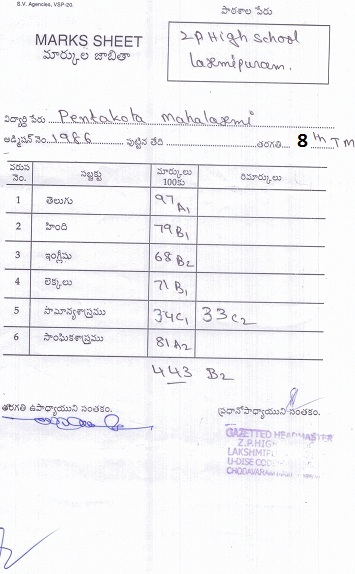 S.V. Agencies, VSP-20.
పాఠశాల పేరు
MARKS SHEET
మార్కుల జాబితా
Z.P High School
Laxmipuram.
విద్యార్థి పేరు Pentakota Mahalaxmi
అడ్మిషన్ నెం. 1986 పుట్టిన తేది తరగతి 8th TM
వరుస నెం. సబ్జక్టు మార్కులు 100కు రిమార్కులు
1 తెలుగు 97 A1
2 హింది 79 B1
3 ఇంగ్లీషు 68 B2
4 లెక్కలు 71 B1
5 సామాన్యశాస్త్రము 34 C1 33 C2
6 సాంఘికశాస్త్రము 81 A2
443 B2
తరగతి ఉపాధ్యాయుని సంతకం. ప్రధానోపాధ్యాయుని సంతకం.
GAZETTED HEADMASTER
Z.P.HIGH
U-DISE CODE